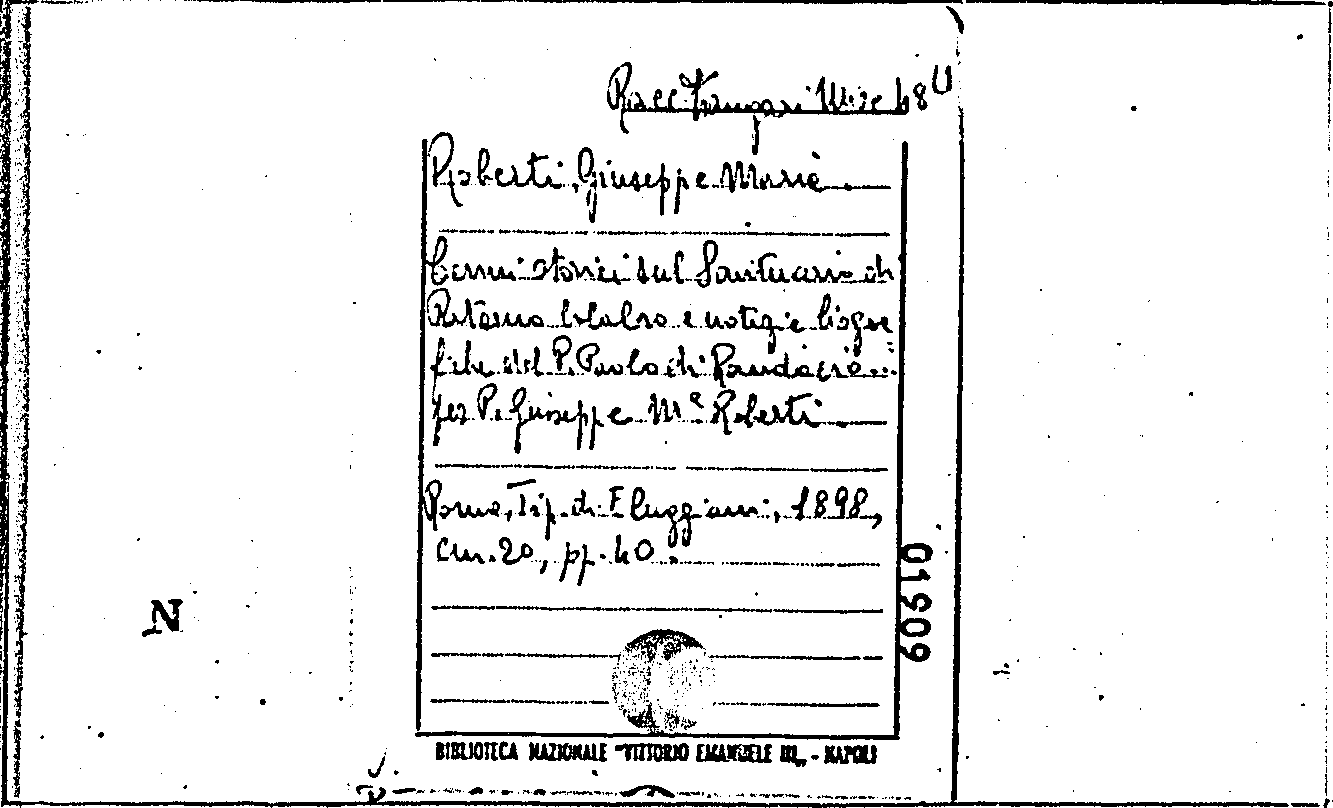 Racc. Misc. 48
Roberti, Giuseppe Maria.
Cenni storici sul Santuario di
Paterno Calabro e notizie biogra
fiche del P. Paolo di Randazzo...
per P. Giuseppe Mª Roberti
Roma, Tip. di F. Cuggiani, 1898,
cm. 20, pp. 40.
01909
N
BIBLIOTECA NAZIONALE "VITTORIO EMANUELE III" - NAPOLI